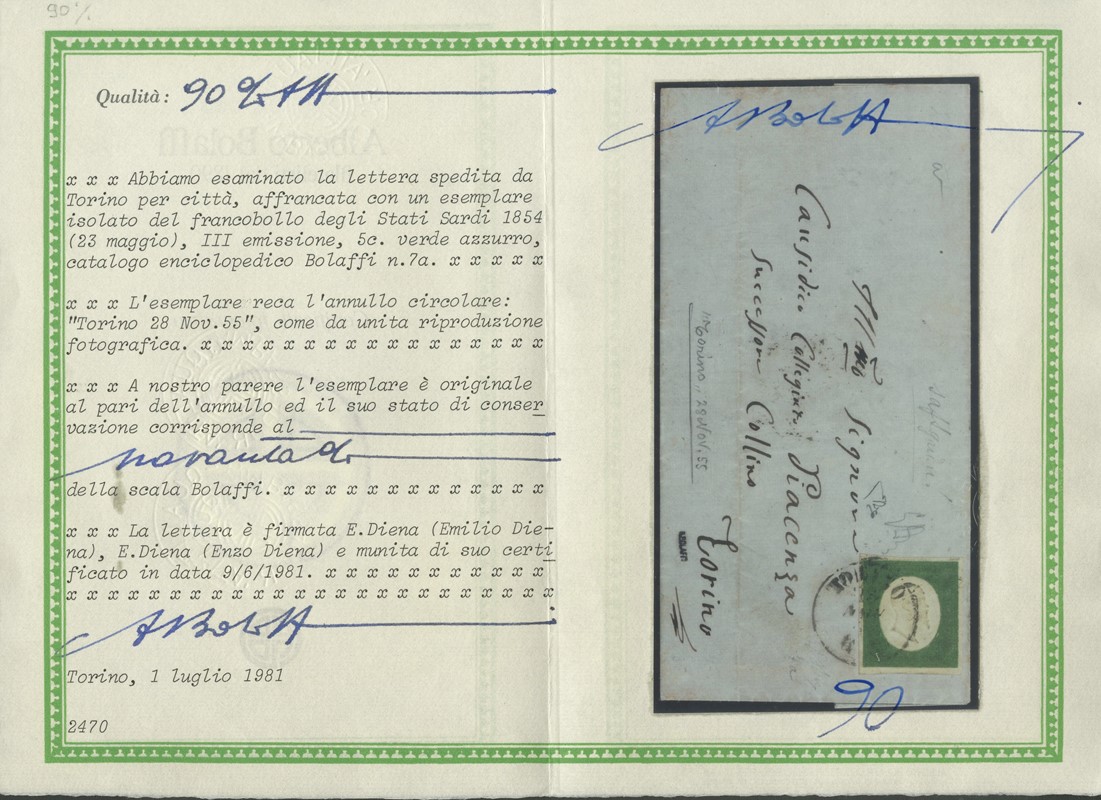 90%
Qualità: 90%
x x x Abbiamo esaminato la lettera spedita da
Torino per città, affrancata con un esemplare
isolato del francobollo degli Stati Sardi 1854
(23 maggio), III emissione, 5c. verde azzurro,
catalogo enciclopedico Bolaffi n.7a. x x x x x
x x x L'esemplare reca l'annullo circolare:
"Torino 28 Nov.55", come da unita riproduzione
fotografica. x x x x x x x x x x x x x x x x x
x x x A nostro parere l'esemplare è originale
al pari dell'annullo ed il suo stato di conser
vazione corrisponde al
novanta
della scala Bolaffi. x x x x x x x x x x x x x
x x x La lettera è firmata E.Diena (Emilio Die-
na), E.Diena (Enzo Diena) e munita di suo certi
ficato in data 9/6/1981. x x x x x x x x x x x
x x x x x x x x x x x x x x x x x x x x x x x x
ABolaffi
Torino, 1 luglio 1981
2470
ABolaffi
Ill.mo Signor
Causidico Collegiato Piacenza
Successore Collino
Torino
"Torino,, 28 Nov. 55
90